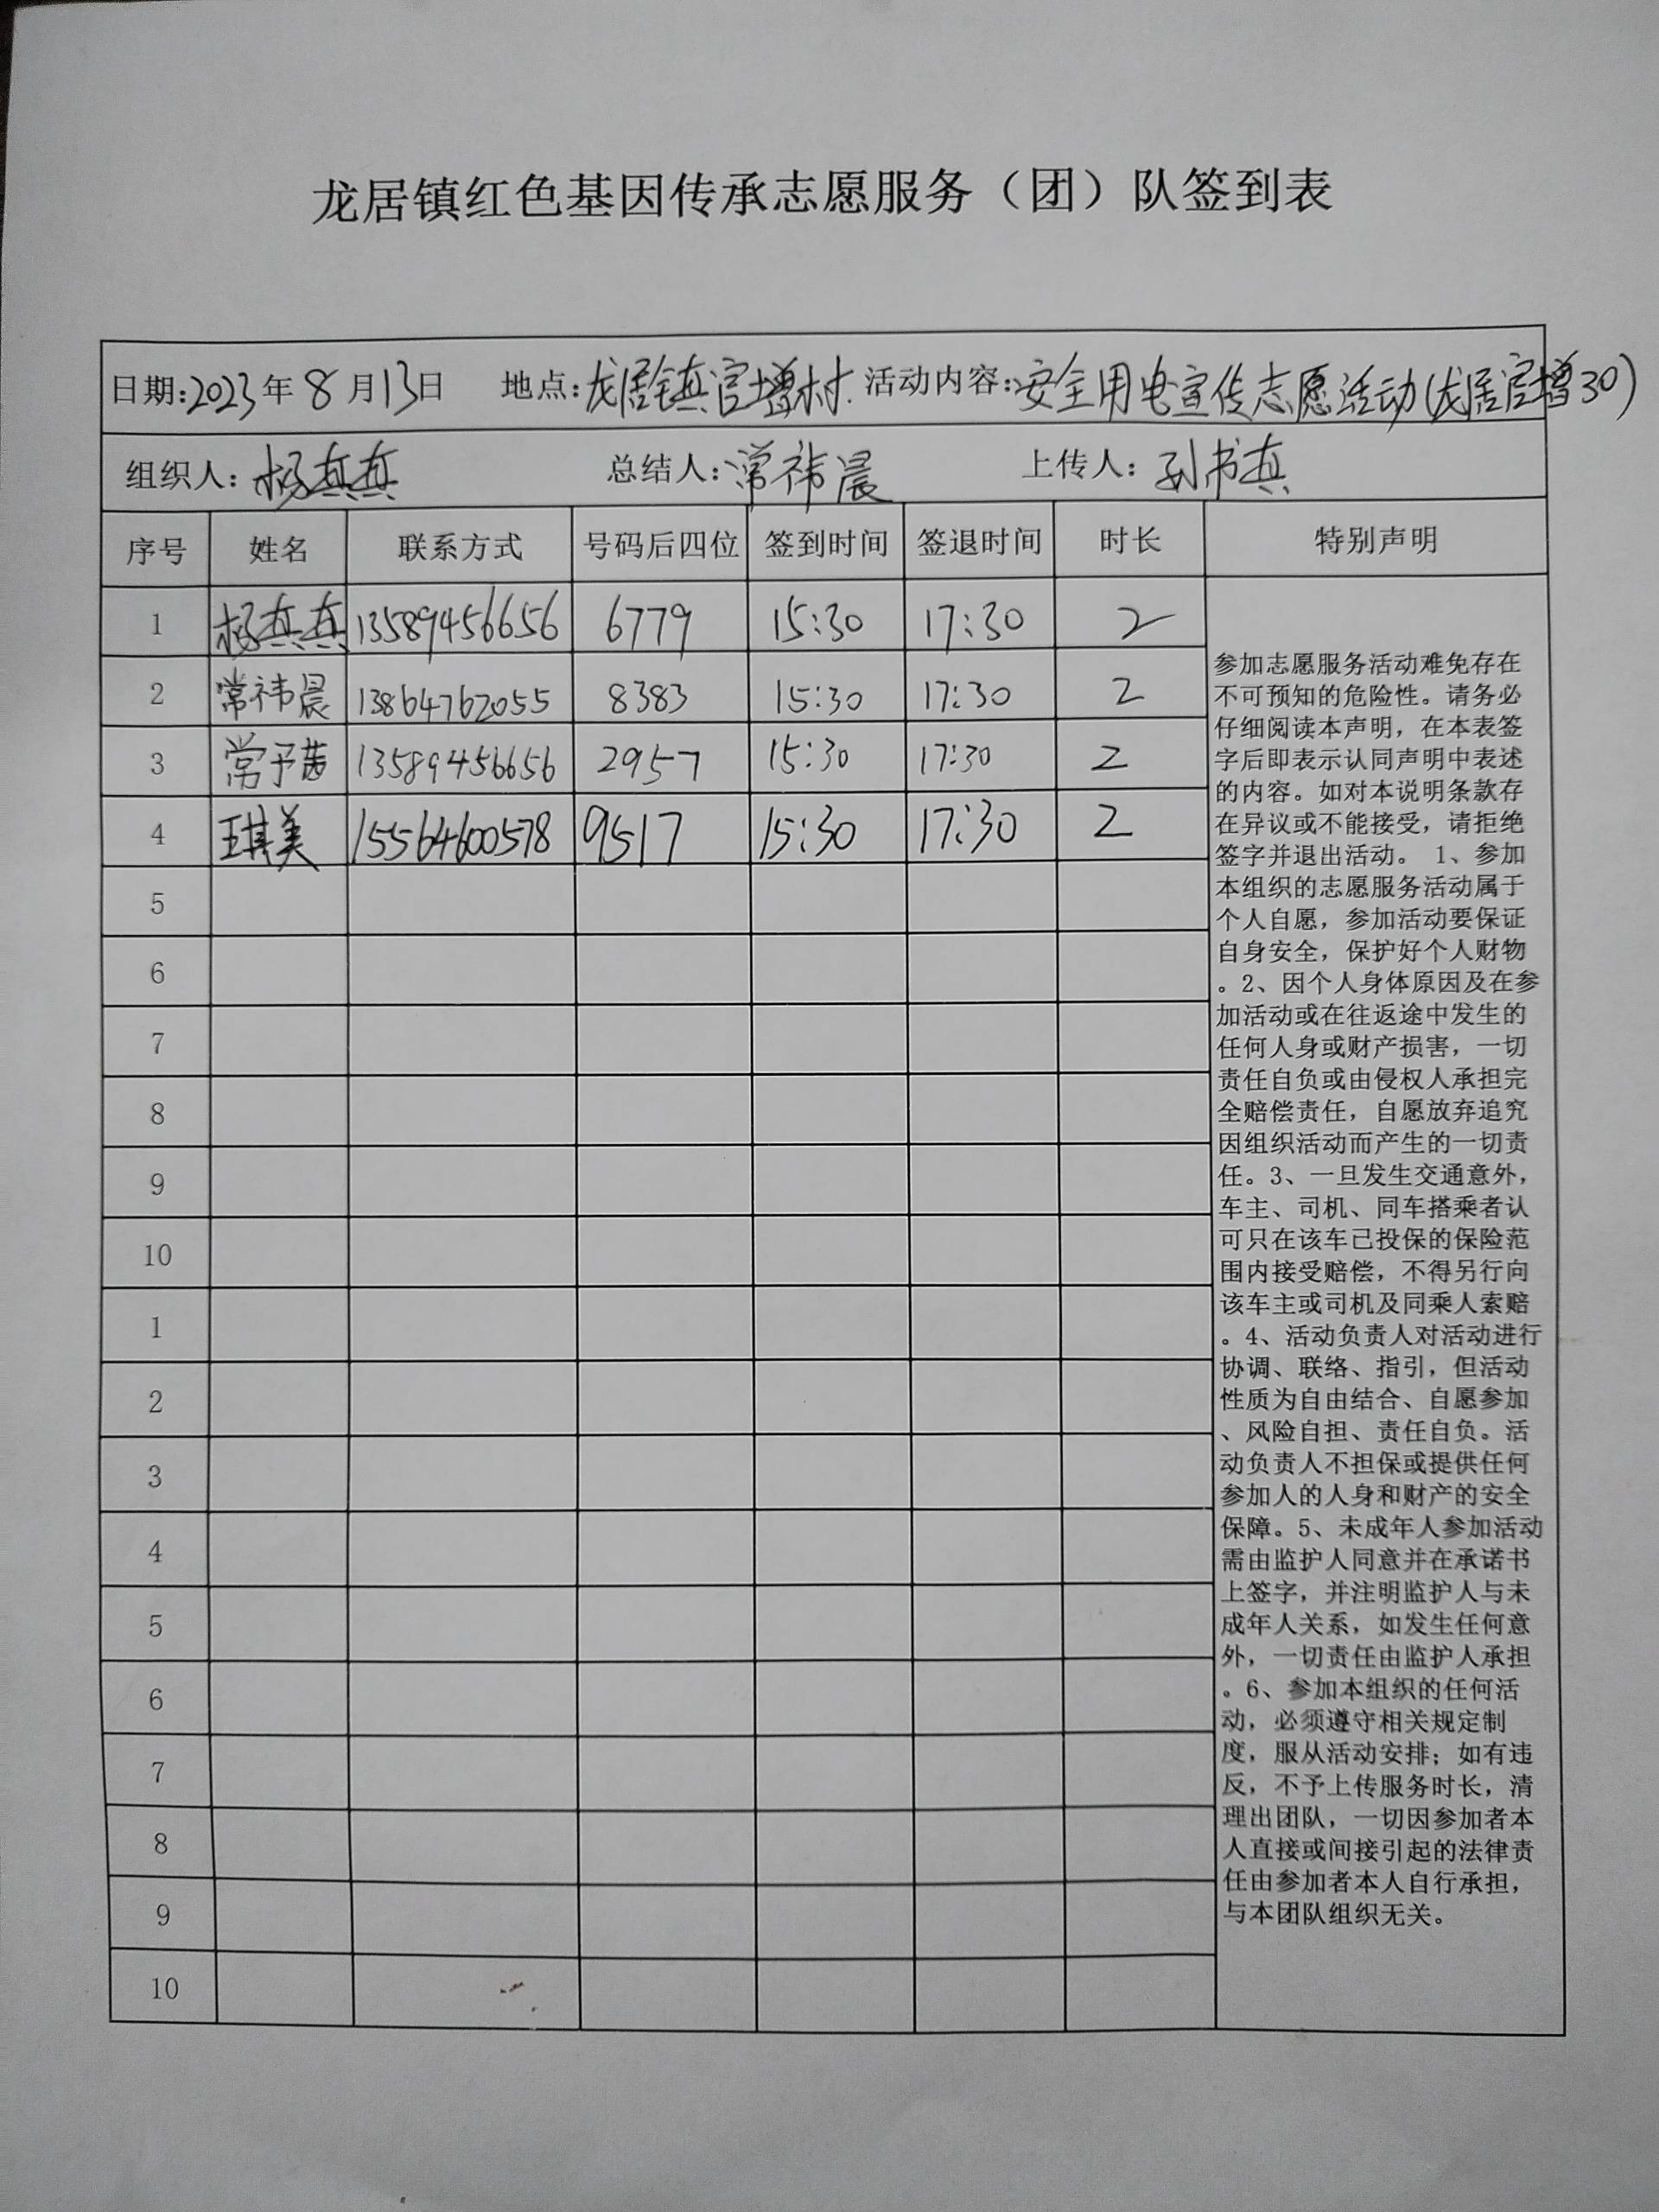 龙居镇红色基因传承志愿服务（团）队签到表
日期:2023年8月13日 地点:龙居镇官增村. 活动内容:安全用电宣传志愿活动(龙居官增30)
组织人: 杨真真 总结人:常祎晨 上传人: 孙书真
序号 姓名 联系方式 号码后四位 签到时间 签退时间 时长 特别声明
1 杨真真 13589456656 6779 15:30 17:30 2
2 常祎晨 13864762055 8383 15:30 17:30 2
3 常予茜 13589456656 2957 15:30 17:30 2
4 王琪美 15564600578 9517 15:30 17:30 2
5
6
7
8
9
10
1
2
3
4
5
6
7
8
9
10
参加志愿服务活动难免存在
不可预知的危险性。请务必
仔细阅读本声明，在本表签
字后即表示认同声明中表述
的内容。如对本说明条款存
在异议或不能接受，请拒绝
签字并退出活动。 1、参加
本组织的志愿服务活动属于
个人自愿，参加活动要保证
自身安全，保护好个人财物
。2、因个人身体原因及在参
加活动或在往返途中发生的
任何人身或财产损害，一切
责任自负或由侵权人承担完
全赔偿责任，自愿放弃追究
因组织活动而产生的一切责
任。3、一旦发生交通意外，
车主、司机、同车搭乘者认
可只在该车已投保的保险范
围内接受赔偿，不得另行向
该车主或司机及同乘人索赔
。4、活动负责人对活动进行
协调、联络、指引，但活动
性质为自由结合、自愿参加
、风险自担、责任自负。活
动负责人不担保或提供任何
参加人的人身和财产的安全
保障。5、未成年人参加活动
需由监护人同意并在承诺书
上签字，并注明监护人与未
成年人关系，如发生任何意
外，一切责任由监护人承担
。6、参加本组织的任何活
动，必须遵守相关规定制
度，服从活动安排；如有违
反，不予上传服务时长，清
理出团队，一切因参加者本
人直接或间接引起的法律责
任由参加者本人自行承担，
与本团队组织无关。